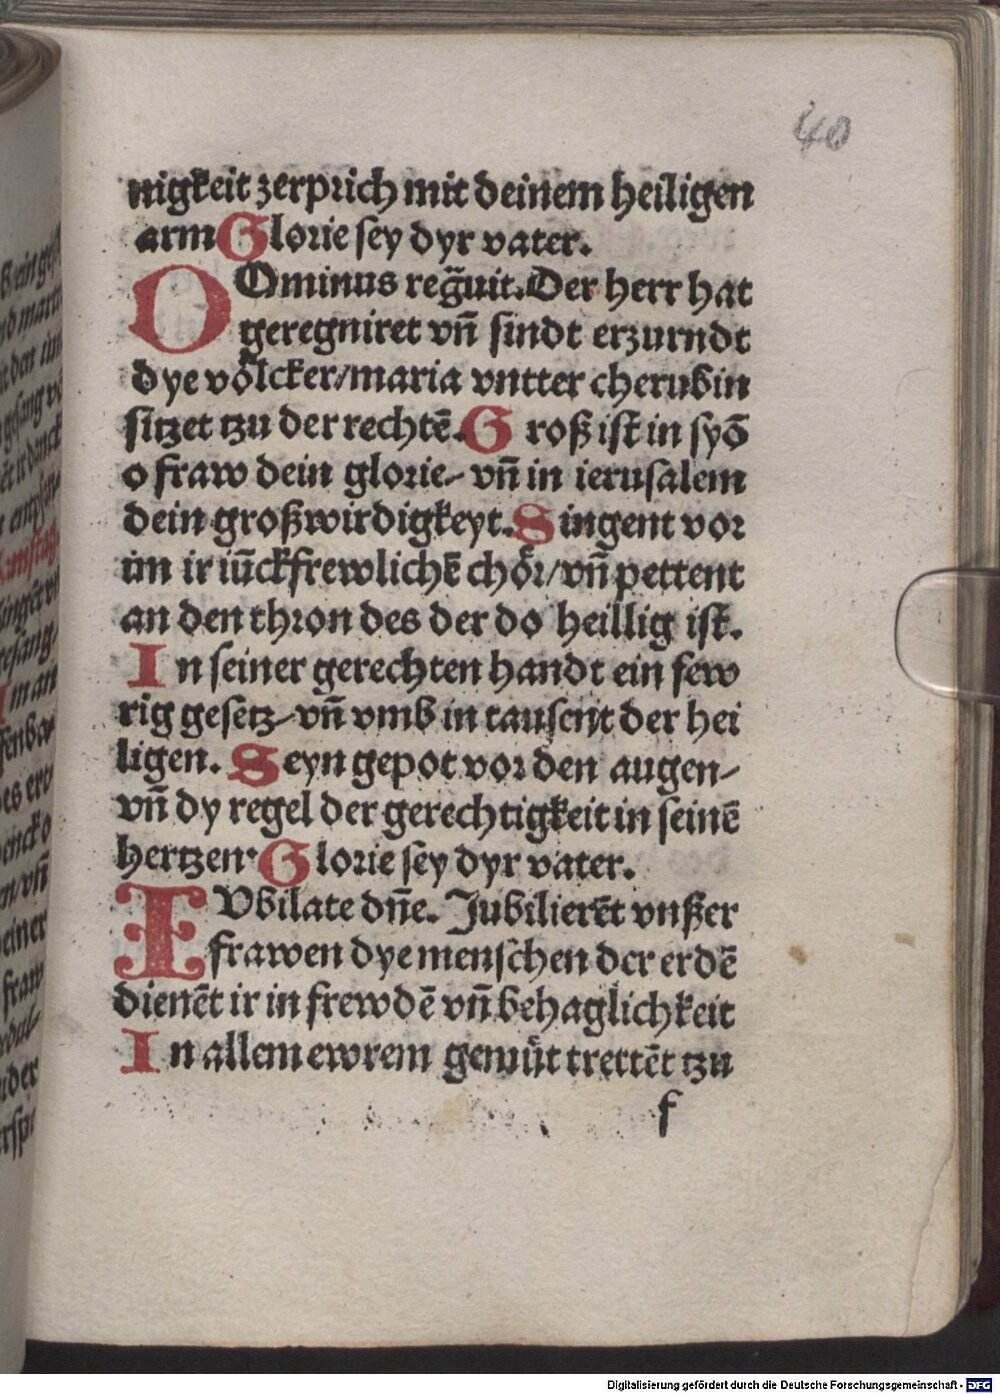 40
nigkeit zerprich mit deinem heiligen
arm Glorie sey dyr vater.
DOminus regᷓuit. Der herr hat
geregniret vñ sindt erzurndt
dye voͤlcker/maria vntter cherubin
sitzet tzu der rechtē. Groß ist in syō
o fraw dein glorie/ vñ in ierusalem
dein großwirdigkeyt. Singent vor
im ir iūckfrewlichē choͤr/vñ pettent
an den thron des der do heillig ist.
In seiner gerechten handt ein few
rig gesetz/ vñ vmb in tausent der hei
ligen. Seyn gepot vor den augen/
vñ dy regel der gerechtigkeit in seinē
hertzen. Glorie sey dyr vater.
IVbilate dn̄e. Jubilierēt vnßer
frawen dye menschen der erdē
dienēt ir in frewdē vñ behaglichkeit
In allem ewrem gemuͤt trettēt tzu
f
Digitalisierung gefördert durch die Deutsche Forschungsgemeinschaft - DFG